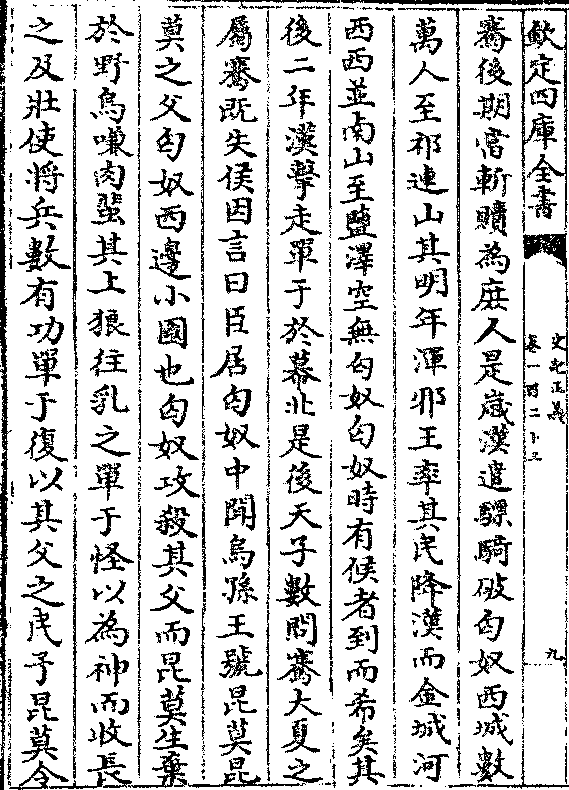 欽定四庫全書
史記正義
卷一百二十三
九
騫後期當斬贖為庶人是歲漢遣驃騎破匈奴西城數
萬人至祁連山其明年渾邪王率其民降漢而金城河
西西並南山至鹽澤空無匈奴匈奴時有候者到而希矣其
後二年漢擊走單于於幕北是後天子數問騫大夏之
屬騫既失侯因言曰臣居匈奴中聞烏孫王號昆莫昆
莫之父匈奴西邊小國也匈奴攻殺其父而昆莫生棄
於野烏嗛肉蜚其上狼往乳之單于怪以為神而收長
之及壯使將兵數有功單于復以其父之民予昆莫令